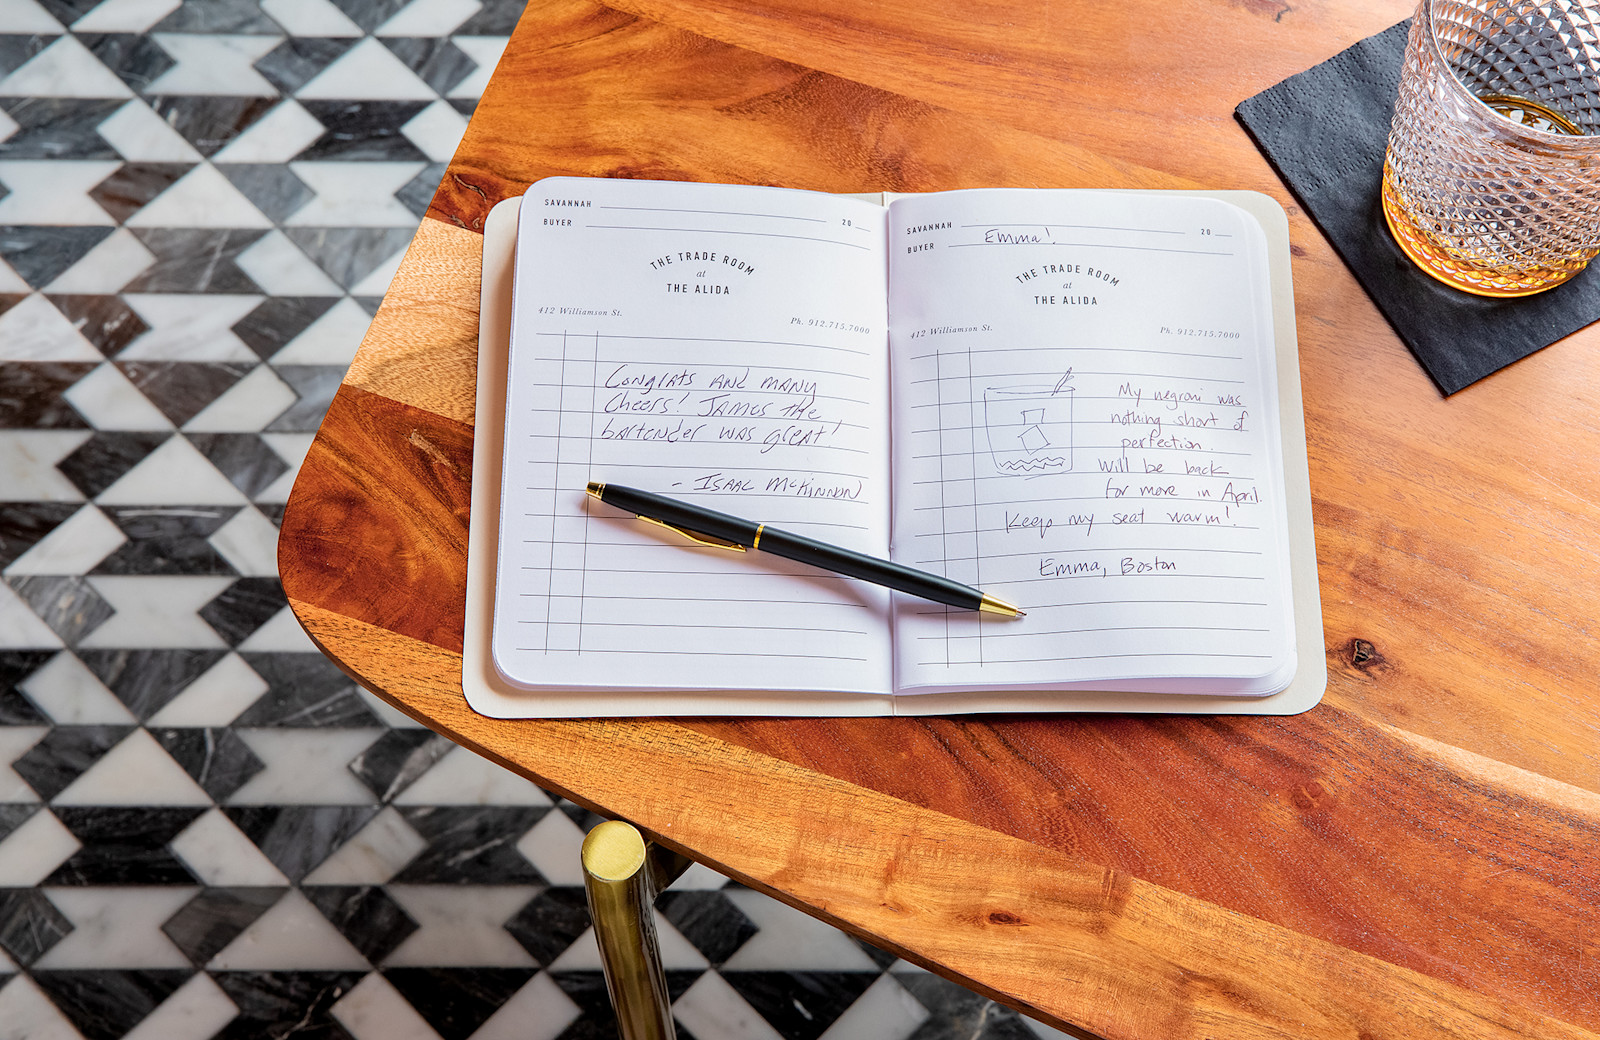 SAVANNAH 20
BUYER
THE TRADE ROOM
at
THE ALIDA
412 Williamson St. Ph. 912.715.7000
Congrats and many
Cheers! James the
bartender was great!
- Isaac McKinnon
SAVANNAH 20
BUYER Emma!
THE TRADE ROOM
at
THE ALIDA
412 Williamson St. Ph. 912.715.7000
My negroni was
nothing short of
perfection.
Will be back
for more in April.
Keep my seat warm!
Emma, Boston